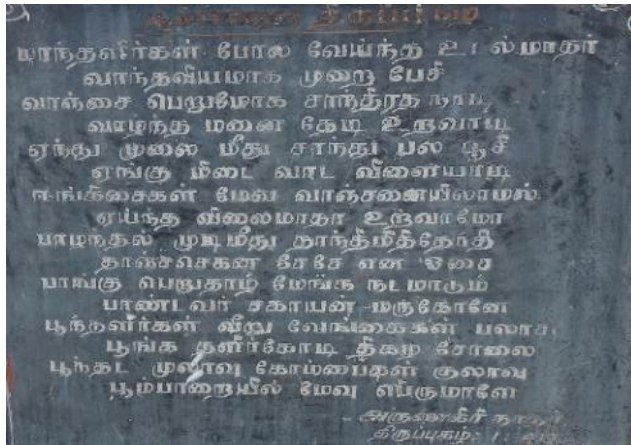 பூம்பாறை திருப்புகழ்
மாந்தளிர்கள் போல வேய்ந்த உடல்மாதர்
வாந்தவியமாக முறை பேசி
வாஞ்சை பெறுமோக சாந்த்ரத நாடி
வாழ்ந்த மனை தேடி உறவாடி
ஏந்து முலை மீது சாந்து பல பூசி
ஏங்கு மிடை வாட விளையாடி
ஈங்கிசைகள் மேவ வாஞ்சனையிலாமல்
ஏய்ந்த விலைமாதர் உறவாமோ
பாழந்தல் முடிமீது தாந்திமித்தோதி
தாஞ்செகண சேசே என ஓசை
பாங்கு பெறுதாழ் மேங்க நடமாடும்
பாண்டவர் சகாயன் மருகோனே
பூந்தளிர்கள் வீறு வேங்கைகள் பலாச
பூங்க தளிர்கோடி திகழ சோலை
பூந்தட முலாவு கோம்பைகள் குலாவு
பூம்பாறையில் மேவு பெருமாளே
- அருணகிரி நாதர்
திருப்புகழ்